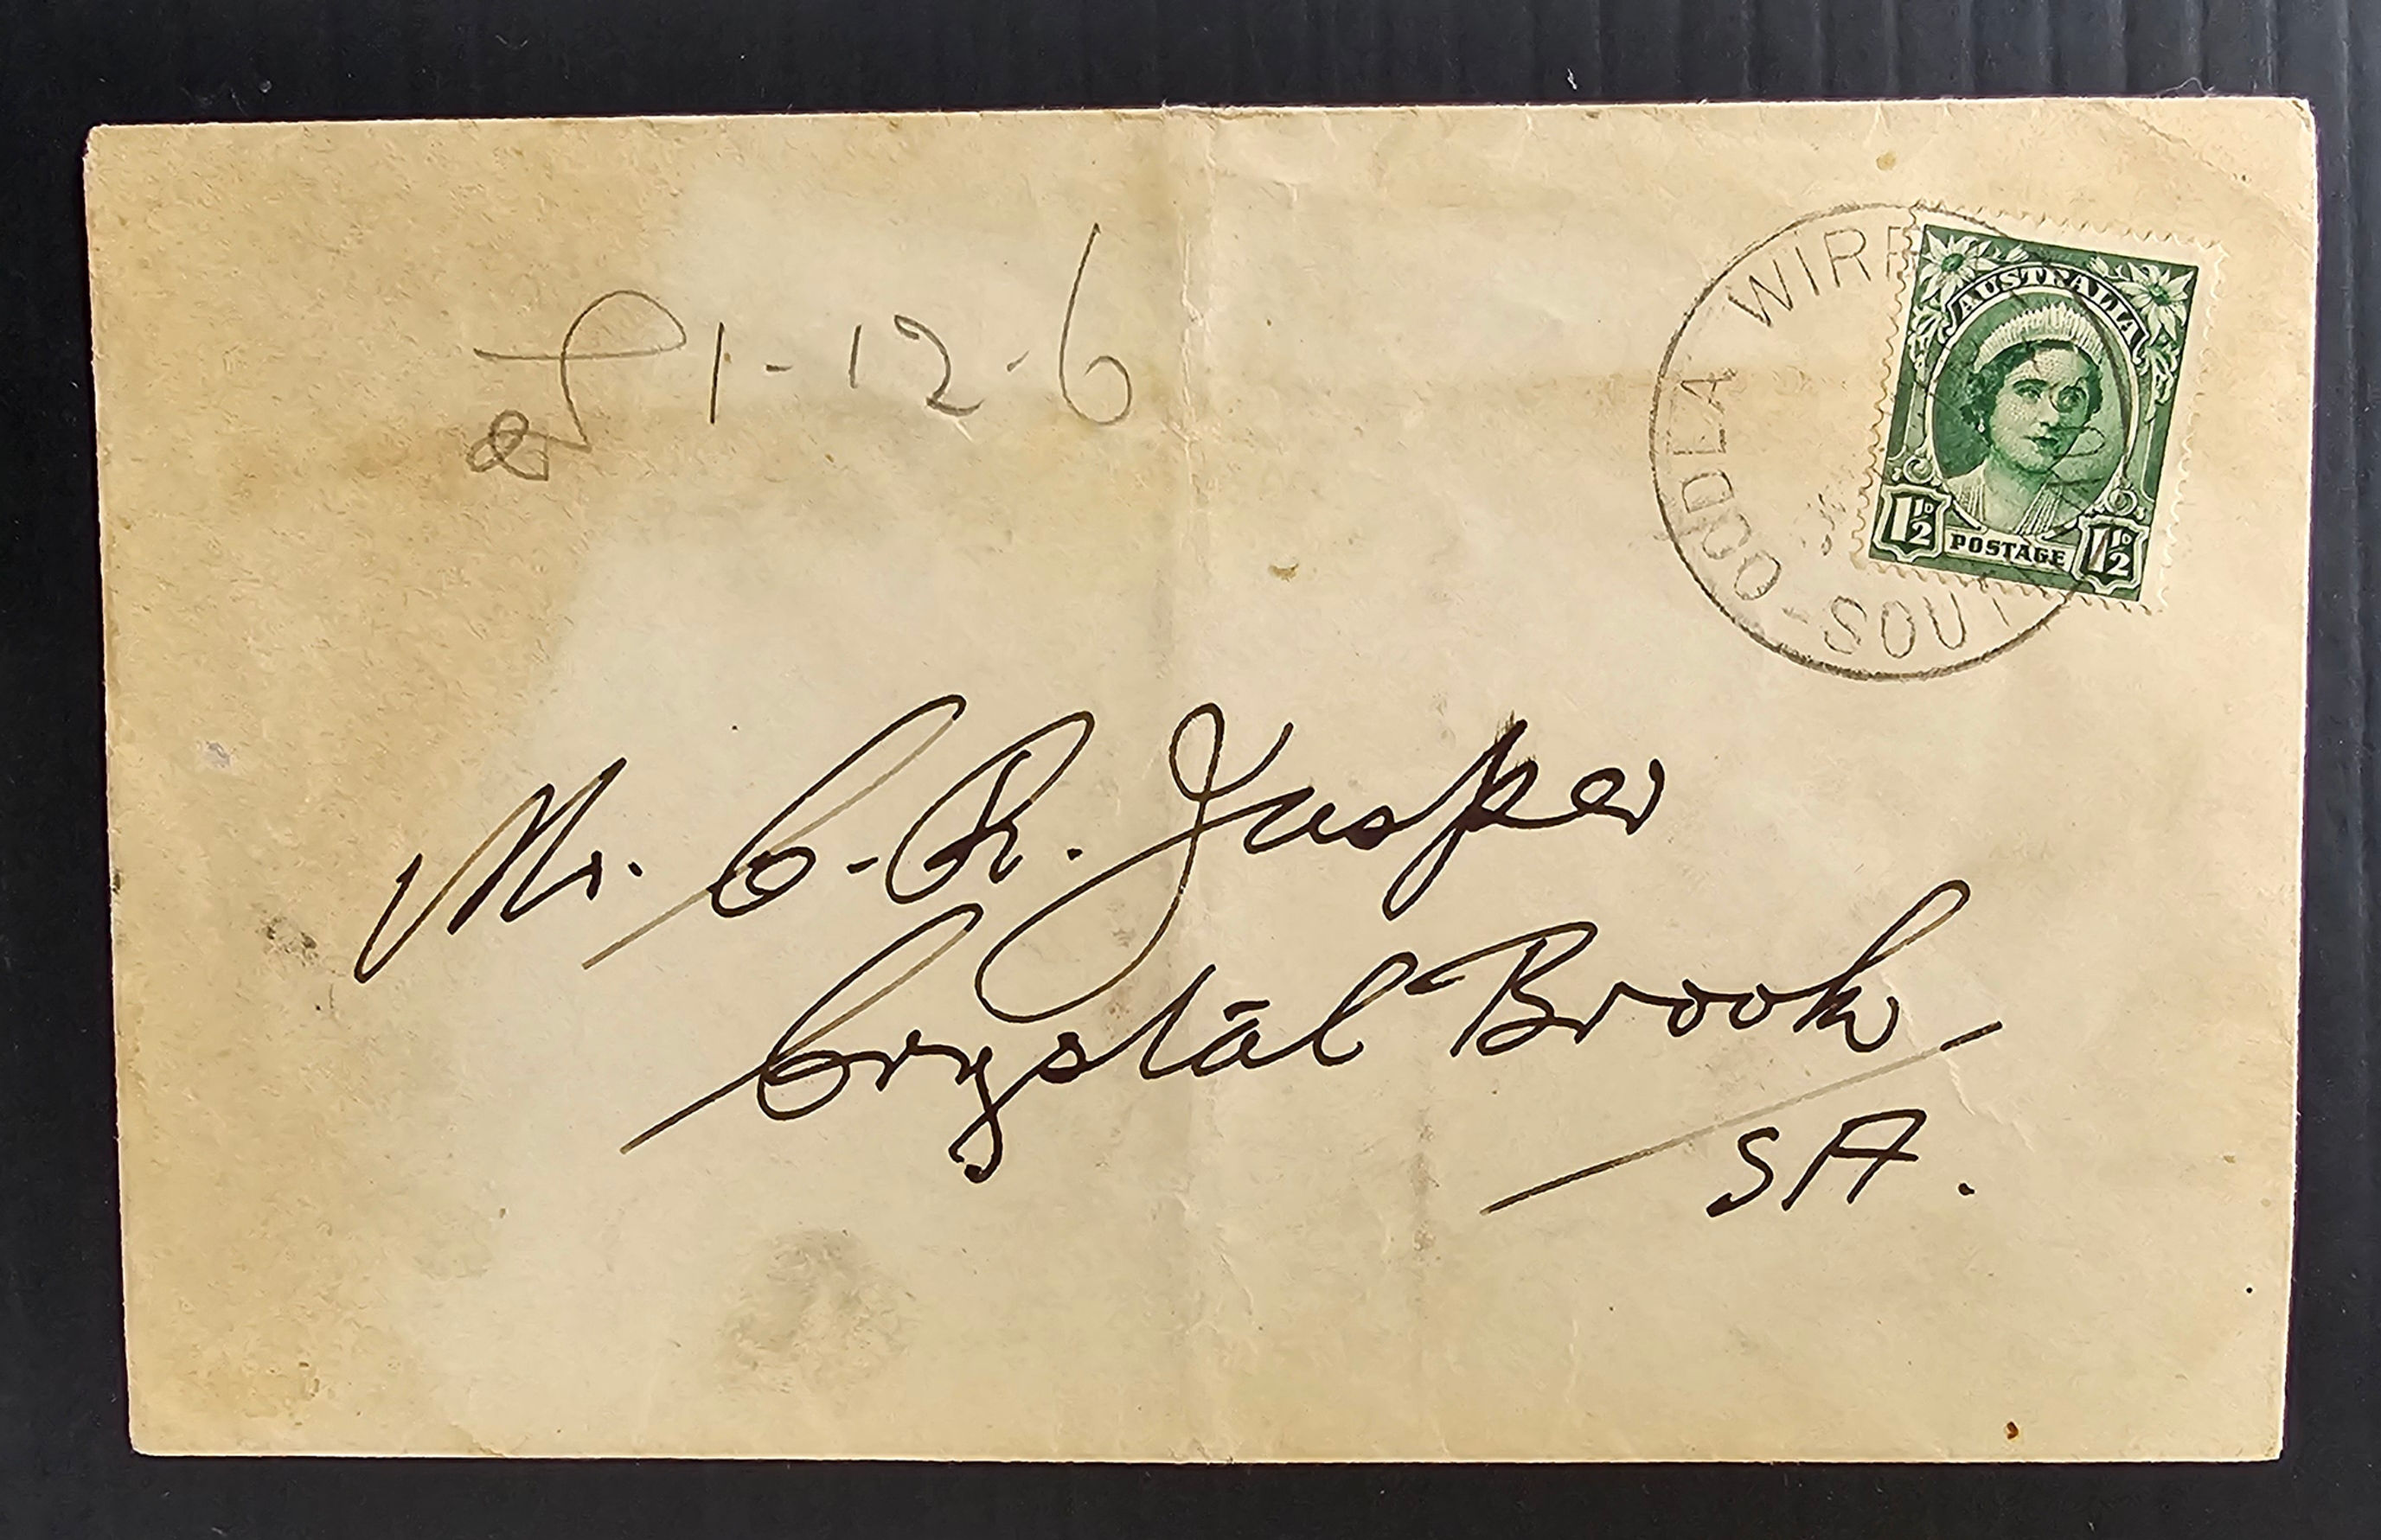 £1-12-6
OODLA WIRR
SOUT
AUSTRALIA
1½D POSTAGE 1½D
Mr. C. R. Jasper
Crystal Brook
SA.